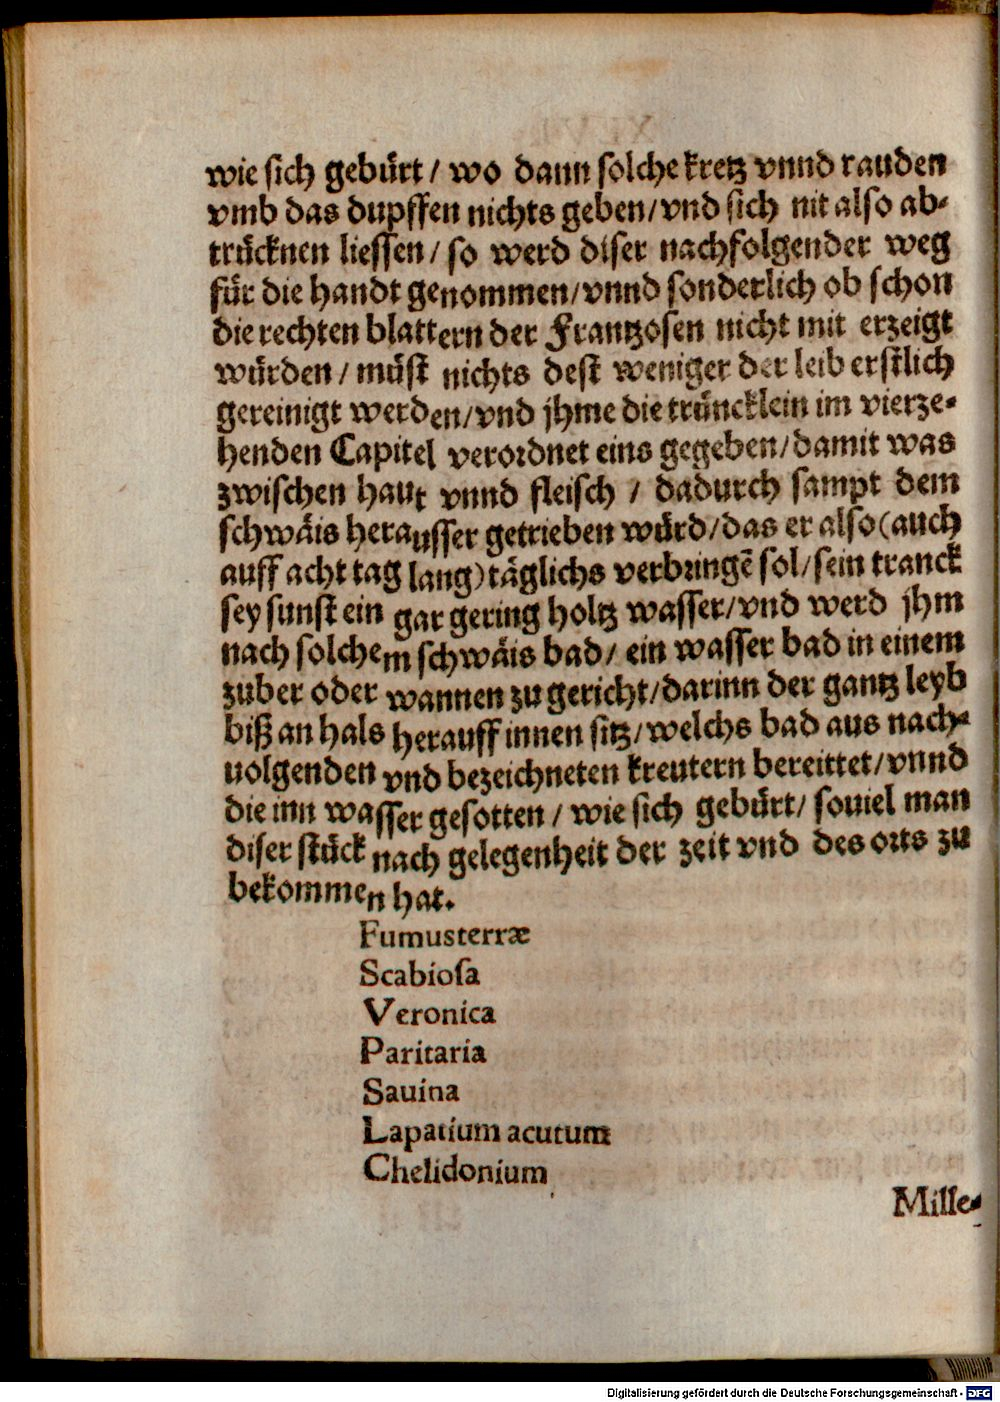 wie sich gebürt / wo dann solche kretz vnnd rauden
vmb das dupffen nichts geben/vnd sich nit also ab⸗
trücknen liessen / so werd diser nachfolgender weg
für die handt genommen/vnnd sonderlich ob schon
die rechten blattern der Frantzosen nicht mit erzeigt
würden / müst nichts dest weniger der leib erstlich
gereinigt werden/vnd jhme die träncklein im vierze⸗
henden Capitel verordnet eins gegeben/damit was
zwischen haut vnnd fleisch / dadurch sampt dem
schwäis herausser getrieben würd/das er also (auch
auff acht tag lang) täglichs verbringē sol/sein tranck
sey sunst ein gar gering holtz wasser/vnd werd jhm
nach solchem schwäis bad/ ein wasser bad in einem
zuber oder wannen zu gericht/darinn der gantz leyb
biß an hals herauff innen sitz/welchs bad aus nach⸗
uolgenden vnd bezeichneten kreutern bereittet/vnnd
die inn wasser gesotten / wie sich gebürt/ souiel man
diser stück nach gelegenheit der zeit vnd des orts zu
bekommen hat.
Fumusterræ
Scabiosa
Veronica
Paritaria
Sauina
Lapatium acutum
Chelidonium
Mille⸗
Digitalisierung gefördert durch die Deutsche Forschungsgemeinschaft - DFG